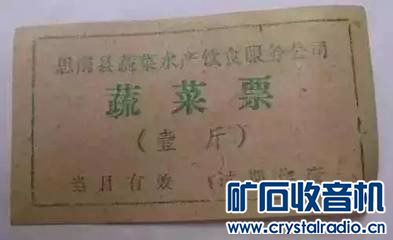 思南县蔬菜水产饮食服务公司
蔬菜票
(壹斤)
当月有效
矿石收音机
www.crystalradio.cn